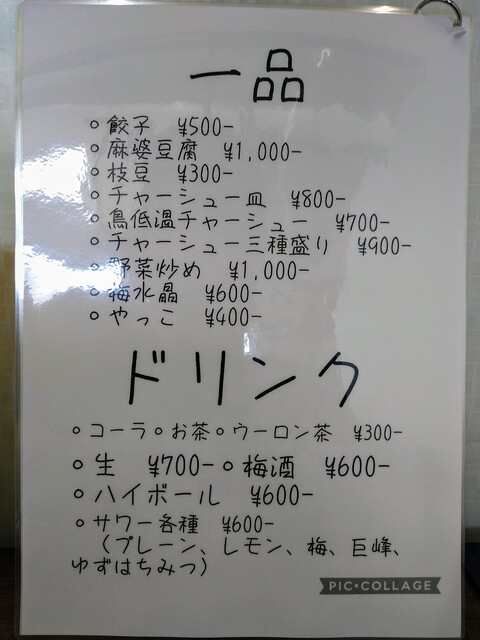 一品
○ 餃子 ¥500-
○ 麻婆豆腐 ¥1,000-
○ 枝豆 ¥300-
○ チャーシュー皿 ¥800-
○ 鳥低温チャーシュー ¥700-
○ チャーシュー三種盛り ¥900-
○ 野菜炒め ¥1,000-
○ 梅水晶 ¥600-
○ やっこ ¥400-
ドリンク
○ コーラ○お茶○ウーロン茶 ¥300-
○生 ¥700-○梅酒 ¥600-
○ハイボール ¥600-
○サワー各種 ¥600-
（プレーン、レモン、梅、巨峰、
ゆずはちみつ）
PIC•COLLAGE